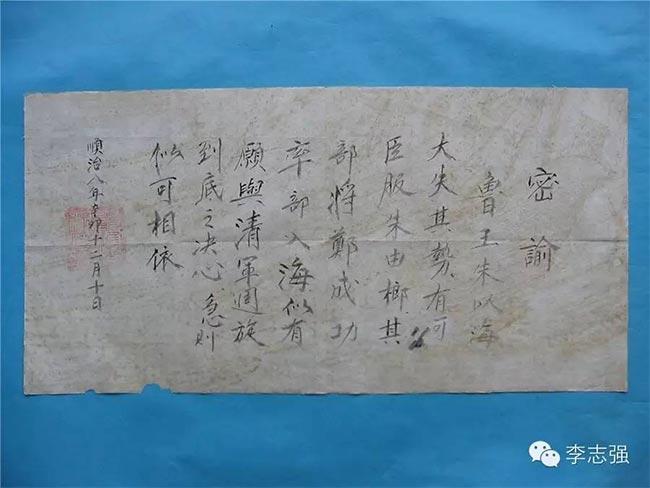 密諭
魯王朱以海
大失其勢有可
臣服朱由榔其
部將鄭成功
率部入海似有
願與清軍週旋
到底之决心急則
似可相依
順治八年辛卯十二月十日
李志强